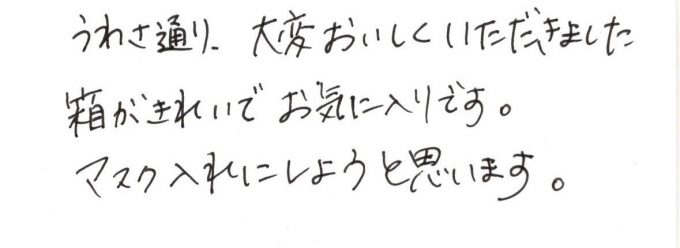 うわさ通り、大変おいしくいただきました
箱がきれいでお気に入りです。
マスク入れにしようと思います。